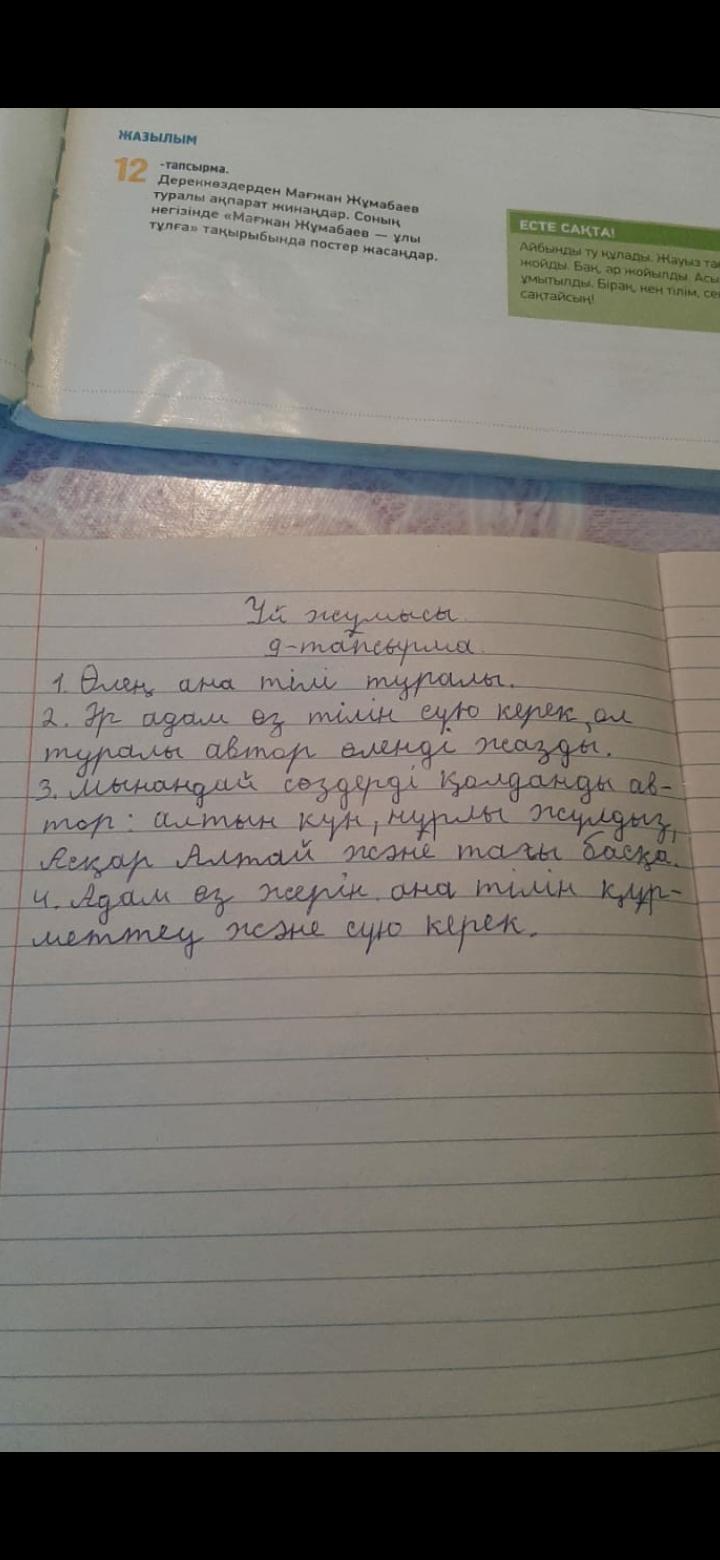 ЖАЗЫЛЫМ
12 -тапсырма.
Дереккөздерден Мағжан Жұмабаев
туралы ақпарат жинаңдар. Соның
негізінде «Мағжан Жұмабаев — ұлы
тұлға» тақырыбында постер жасаңдар.
ЕСТЕ САҚТА!
Айбынды ту құлады. Жауыз
жойды. Бақ, ар жойылды.
ұмытылды. Бірақ, кен тілім,
сақтайсың!
Үй жұмысы
9-тапсырма
1. Өлең ана тілі туралы.
2. Әр адам өз тілін сүю керек, ол
туралы автор өленді жазды.
3. Мынандай сөздерді қолданды ав-
тор: алтын күн, нұрлы жұлдыз,
Асқар Алтай және тағы басқа.
4. Адам өз жерін, ана тілін құр-
меттеу және сүю керек.